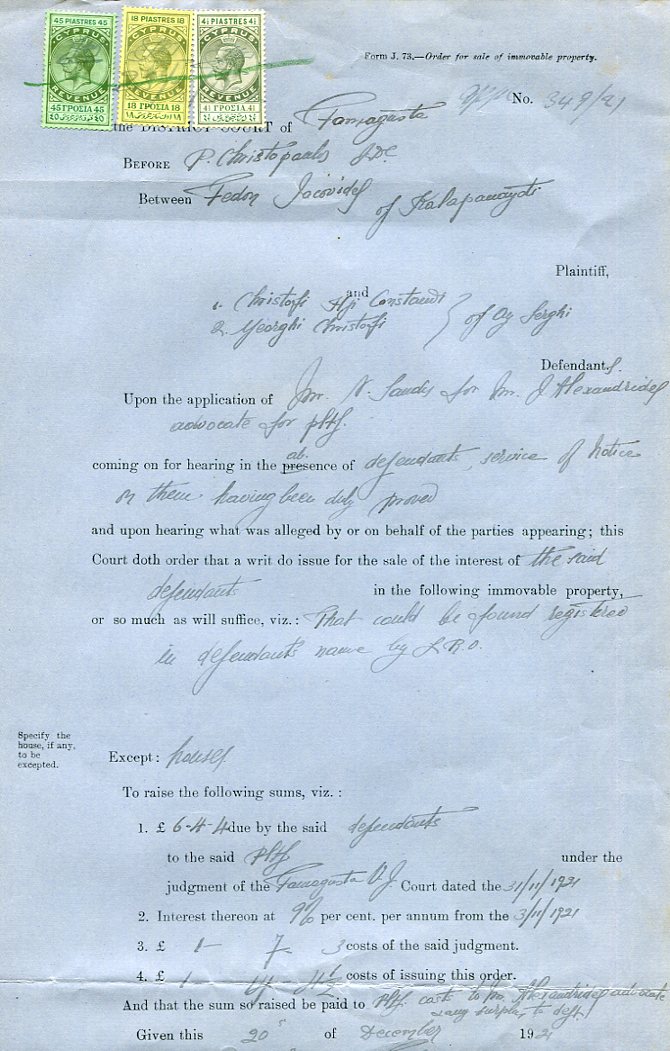 45 PIASTRES 45
CYPRUS
REVENUE
45 ΓΡΟΣΙΑ 45
18 PIASTRES 18
CYPRUS
REVENUE
18 ΓΡΟΣΙΑ 18
4½ PIASTRES 4½
CYPRUS
REVENUE
4½ ΓΡΟΣΙΑ 4½
Form J. 73.—Order for sale of immovable property.
No. 349/21
the DISTRICT COURT of Famagusta
BEFORE P. Christopoulos
Between Fedon Jacovides of Kalapanayoti
Plaintiff,
and
1. Christofi Hji Constandi
2. Yeorghi Christofi } of Ay Serghi
Defendants.
Upon the application of Mr. N. for Mr. J. Alexandrides
advocate for pltf.
ab
coming on for hearing in the presence of defendants, service of notice
on them having been duly proved
and upon hearing what was alleged by or on behalf of the parties appearing; this
Court doth order that a writ do issue for the sale of the interest of the said
defendants in the following immovable property,
or so much as will suffice, viz.: That could be found registered
in defendants name by L.R.O.
Specify the
house, if any,
to be
excepted.
Except: houses
To raise the following sums, viz. :
1. £ 6-4-4 due by the said defendants
to the said pltf under the
judgment of the Famagusta V.J. Court dated the /11/1921
2. Interest thereon at 9% per cent. per annum from the 3/11/1921
3. £ 1 — 7 - 3 costs of the said judgment.
4. £ 1 - - 4½ costs of issuing this order.
And that the sum so raised be paid to pltf. costs to Mr. Alexandrides advocate
& any surplus to deft.
Given this 20 of December 1921